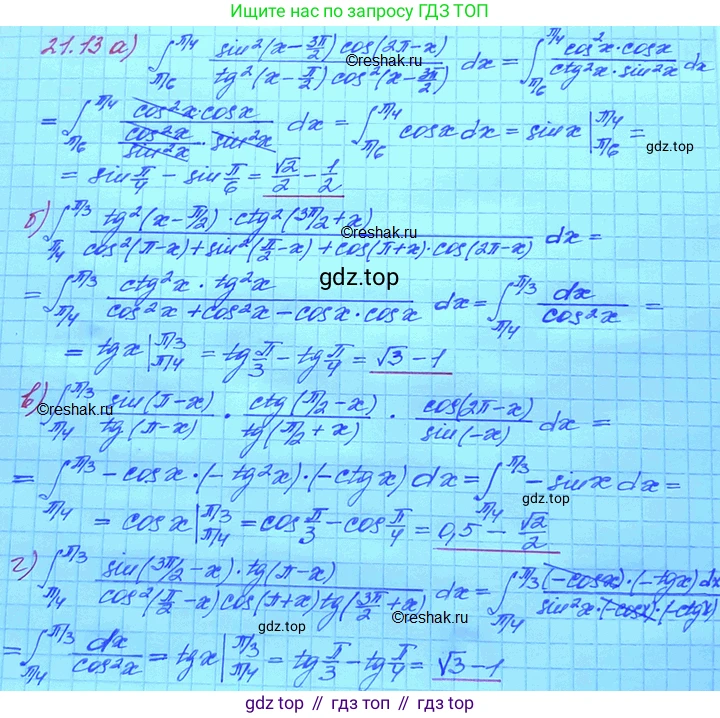 Ищите нас по запросу ГДЗ ТОП
21.13 а) ∫_{π/6}^{π/4} sin²(x-3π/2) cos(2π-x) / tg²(x-π/2) cos²(x-3π/2) dx = ∫_{π/6}^{π/4} cos²x·cosx / ctg²x·sin²x dx
©reshak.ru
= ∫_{π/6}^{π/4} cos²x·cosx / (cos²x/sin²x · sin²x) dx = ∫_{π/6}^{π/4} cosx dx = sinx |_{π/6}^{π/4} =
gdz.top
= sin π/4 - sin π/6 = √2/2 - 1/2
б) ∫_{π/4}^{π/3} tg²(x-π/2)·ctg²(3π/2+x) / cos²(π-x)+sin²(π/2-x)+cos(π+x)·cos(2π-x) dx =
gdz.top
= ∫_{π/4}^{π/3} ctg²x·tg²x / cos²x+cos²x-cosx·cosx dx = ∫_{π/4}^{π/3} dx/cos²x =
= tgx |_{π/4}^{π/3} = tg π/3 - tg π/4 = √3-1
в) ∫_{π/4}^{π/3} sin(π-x)/tg(π-x) · ctg(π/2-x)/tg(π/2+x) · cos(2π-x)/sin(-x) dx =
©reshak.ru
= ∫_{π/4}^{π/3} -cosx·(-tg²x)·(-ctgx) dx = ∫_{π/4}^{π/3} -sinx dx =
= cosx |_{π/4}^{π/3} = cos π/3 - cos π/4 = 0,5 - √2/2
г) ∫_{π/4}^{π/3} sin(3π/2-x)·tg(π-x) / cos²(π/2-x)cos(π+x)tg(3π/2+x) dx = ∫_{π/4}^{π/3} (-cosx)·(-tgx)dx / sin²x·(-cosx)·(-ctgx)
gdz.top
©reshak.ru
= ∫_{π/4}^{π/3} dx/cos²x = tgx |_{π/4}^{π/3} = tg π/3 - tg π/4 = √3-1
gdz.top // гдз.топ // gdz.top // гдз.топ